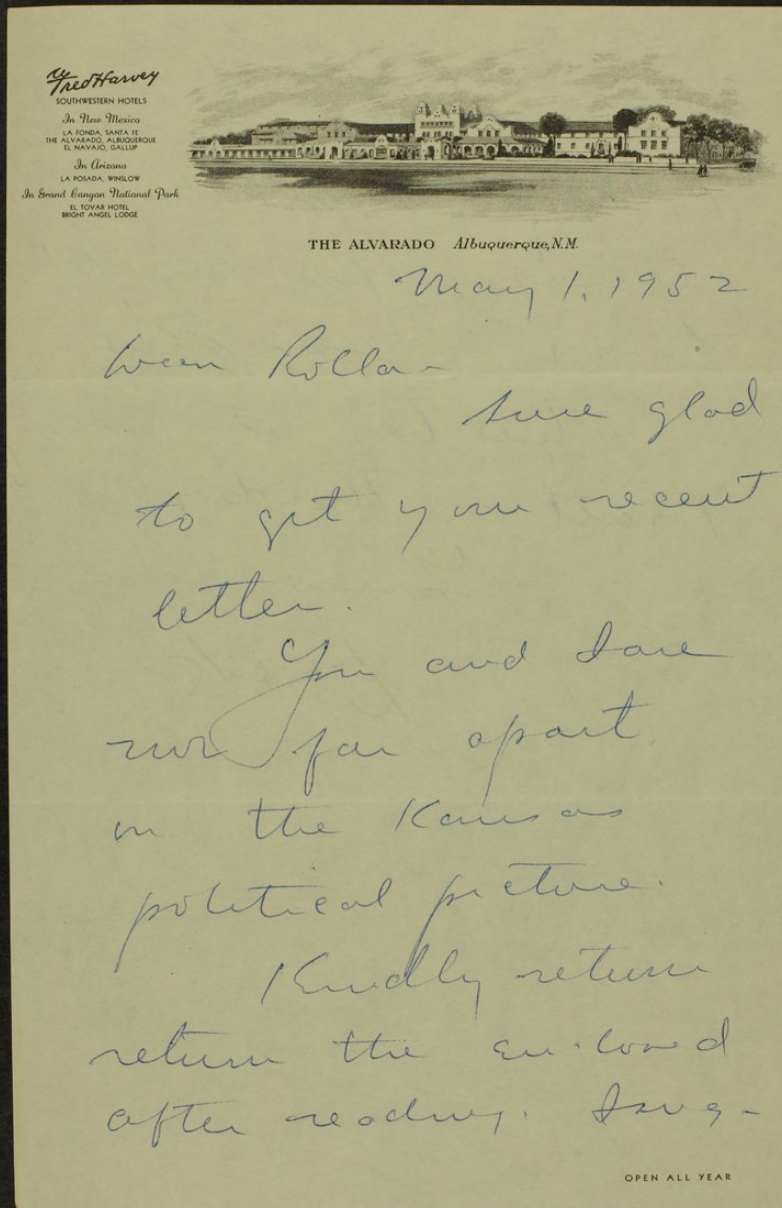 Fred Harvey
SOUTHWESTERN HOTELS
In New Mexico
LA FONDA, SANTA FE
THE ALVARADO, ALBUQUERQUE
EL NAVAJO, GALLUP
In Arizona
LA POSADA, WINSLOW
In Grand Canyon National Park
EL TOVAR HOTEL
BRIGHT ANGEL LODGE
THE ALVARADO Albuquerque, N.M.
May 1, 1952
Dear Rolla -
Sure glad
to get your recent
letter.
You and I are
not far apart
on the Kansas
political picture.
Kindly return
return the enclosed
after reading. I sug-
OPEN ALL YEAR